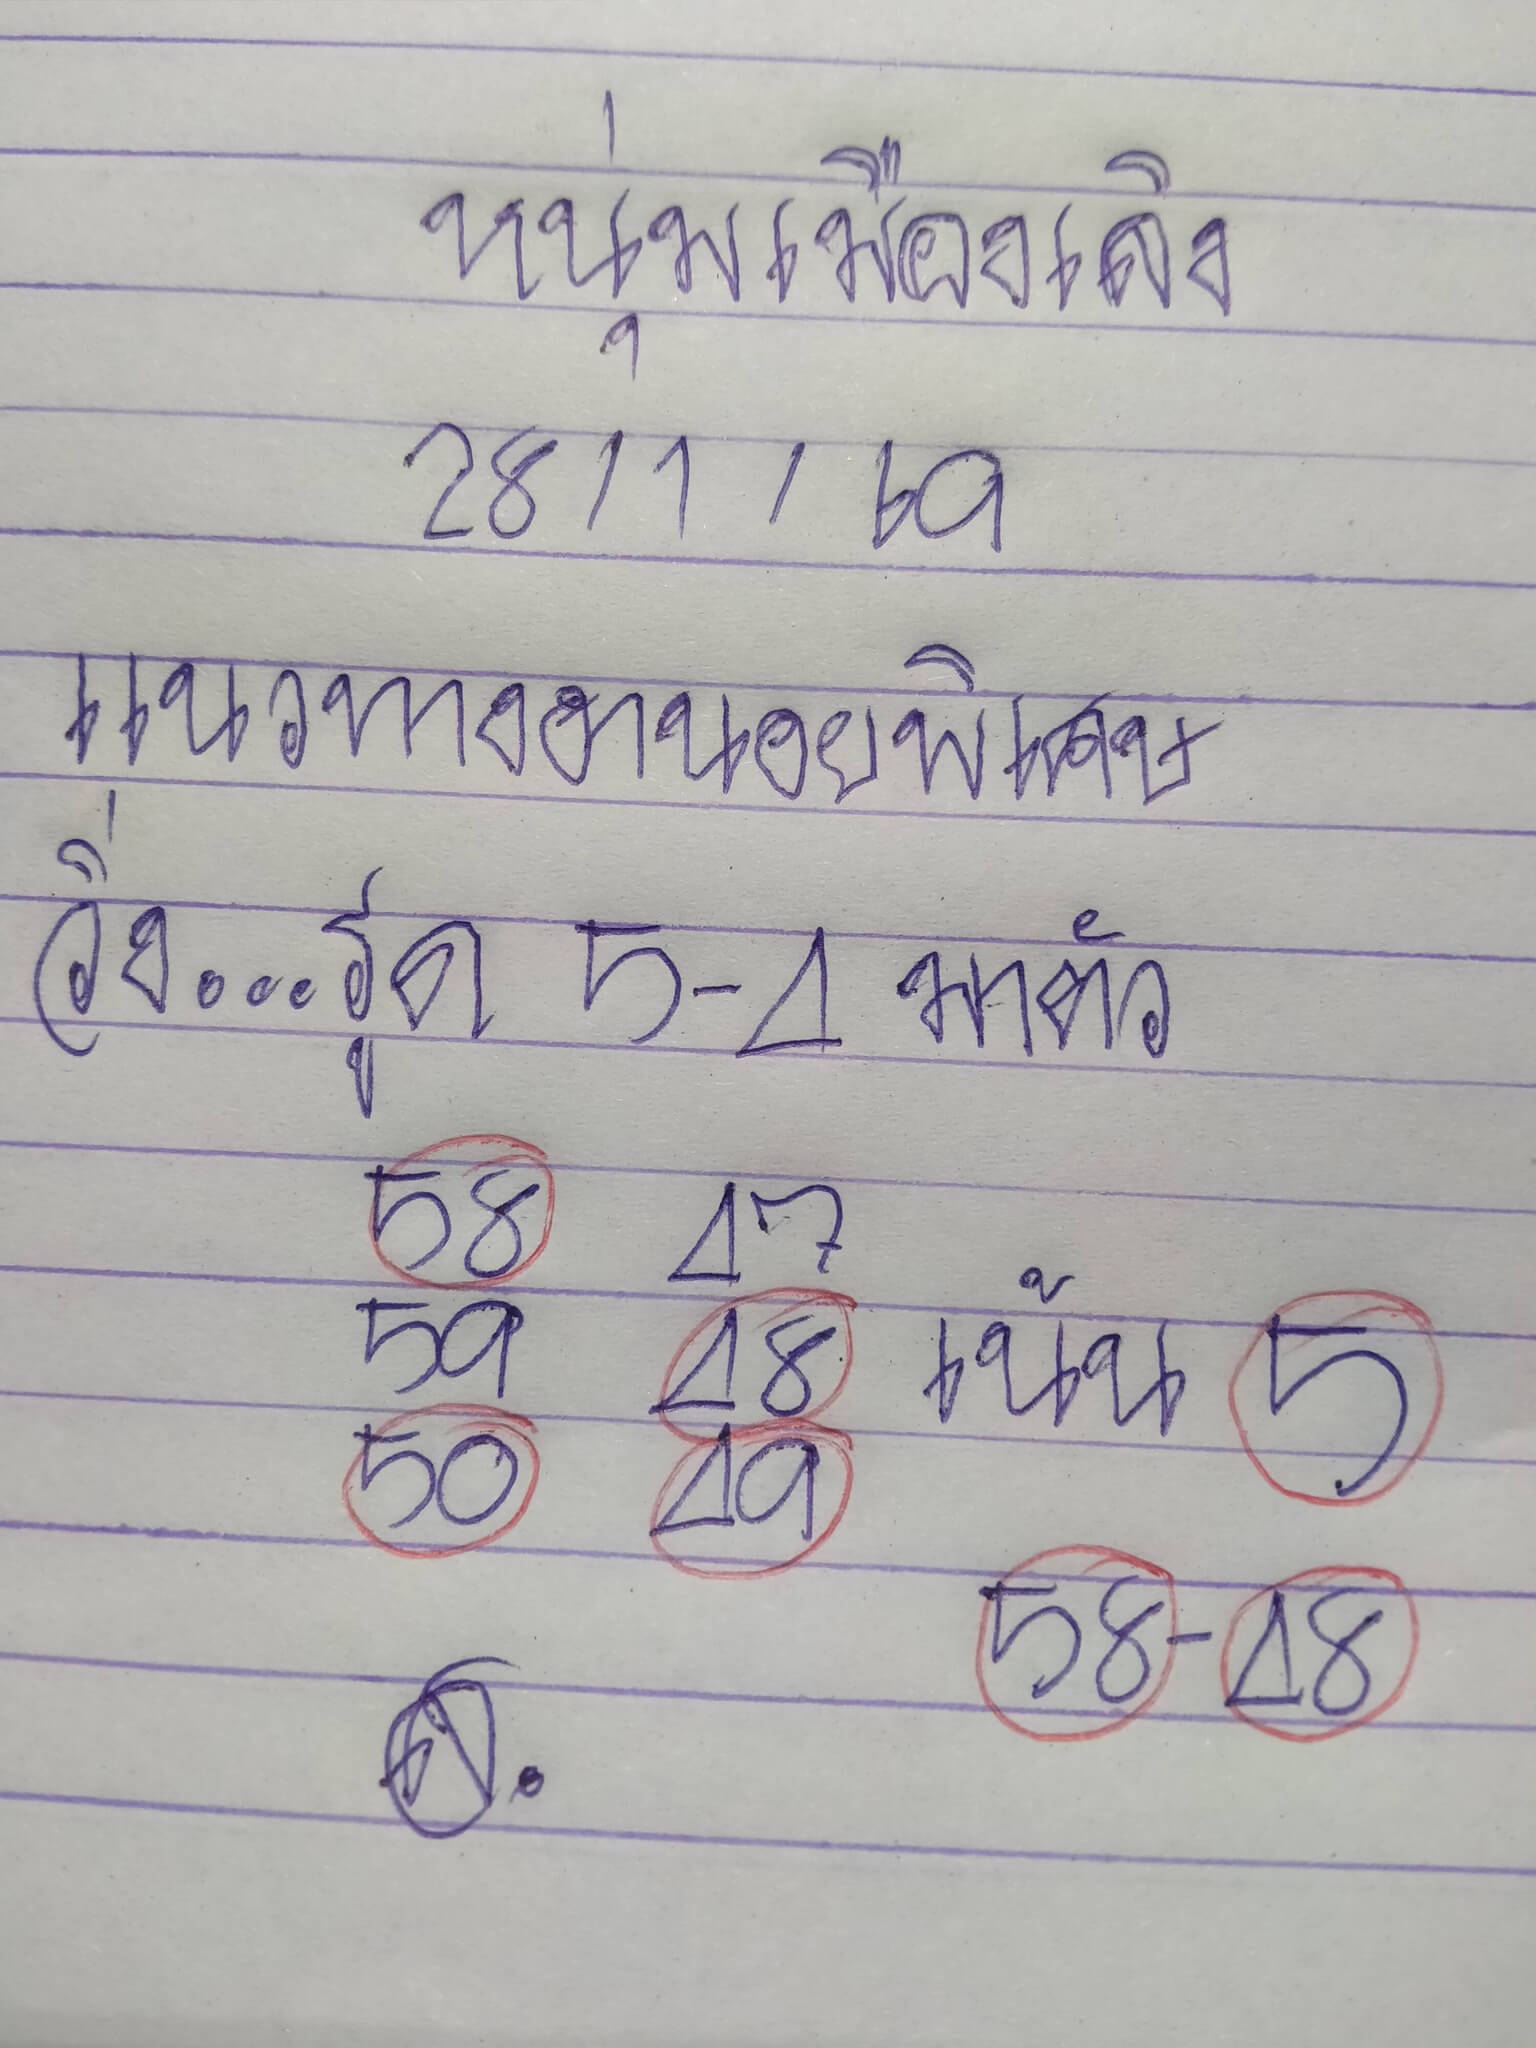 หนุ่มเมืองเลิง
28/1/69
แนวทางฮานอยพิเศษ
วิ่ง...รูด 5-4 มาตัว
58 47
59 48 เน้น 5
50 49
58-48